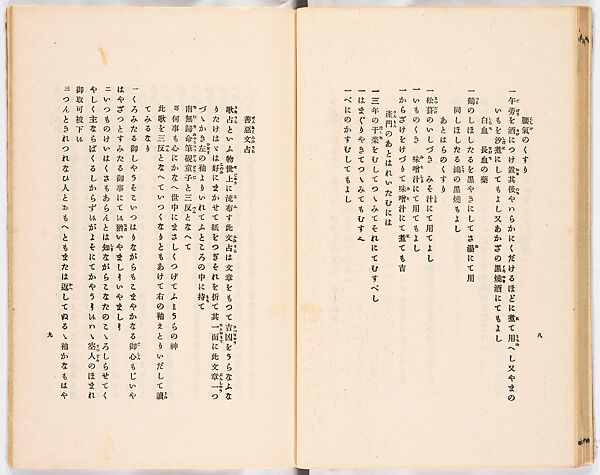 腰氣のくすり
一午蒡を酒につけ置其後やハらかにくだけるほどに煮て用へし又やまの
いもを汐煮にしてもよし又あかざの黒燒酒にてもよし
白血 長血の藥
一鶴のしほしたるを黒やきにしてさ湯にて用
同しほしたる鴻の黒燒もよし
あとはらのくすり
一松茸のいしづき みそ汁にて用てよし
一いものくき 味噌汁にて用てもよし
一からざけをけづり味噌汁にて煮ても吉
産門のあとはれいたむには
一三年の干菜をむしてつゝみてそれにてむすべし
一はまぐりやきてつゝみてもむすべし
一べにのかすむしてもよし
八
善惡文占
歌占といふ物世上に流布す此文占は文章をもつて吉凶をうらなふな
りたけはゞは好にまかせて紙をつぎそれを折て其一面に此文章一つ
づゝかき左の袖よりいれてふところの中に持て
南無歸命筆硯童子と三反となへて
何事も心にかなへ世中にまさしくつげてふょうらの神
此歌を三反となへていつくなりともあけて右の袖えとりいだして讀
てみるなり
一くろみたる御しやうそこいつはりながらもこまやかなる御心もじいや
はやざつとすみたる御事にてい猶いやましいやまし
二いつものけいはくさもあらんとは知ながらこなたのこゝろしらせてく
やしく主ならばくるしからずがよそにてかやうりハゝ空人のほまれ
御取可被下
三つんときれつれなひ人とおもへともまたは返してぬるゝ袖かなもはや
九